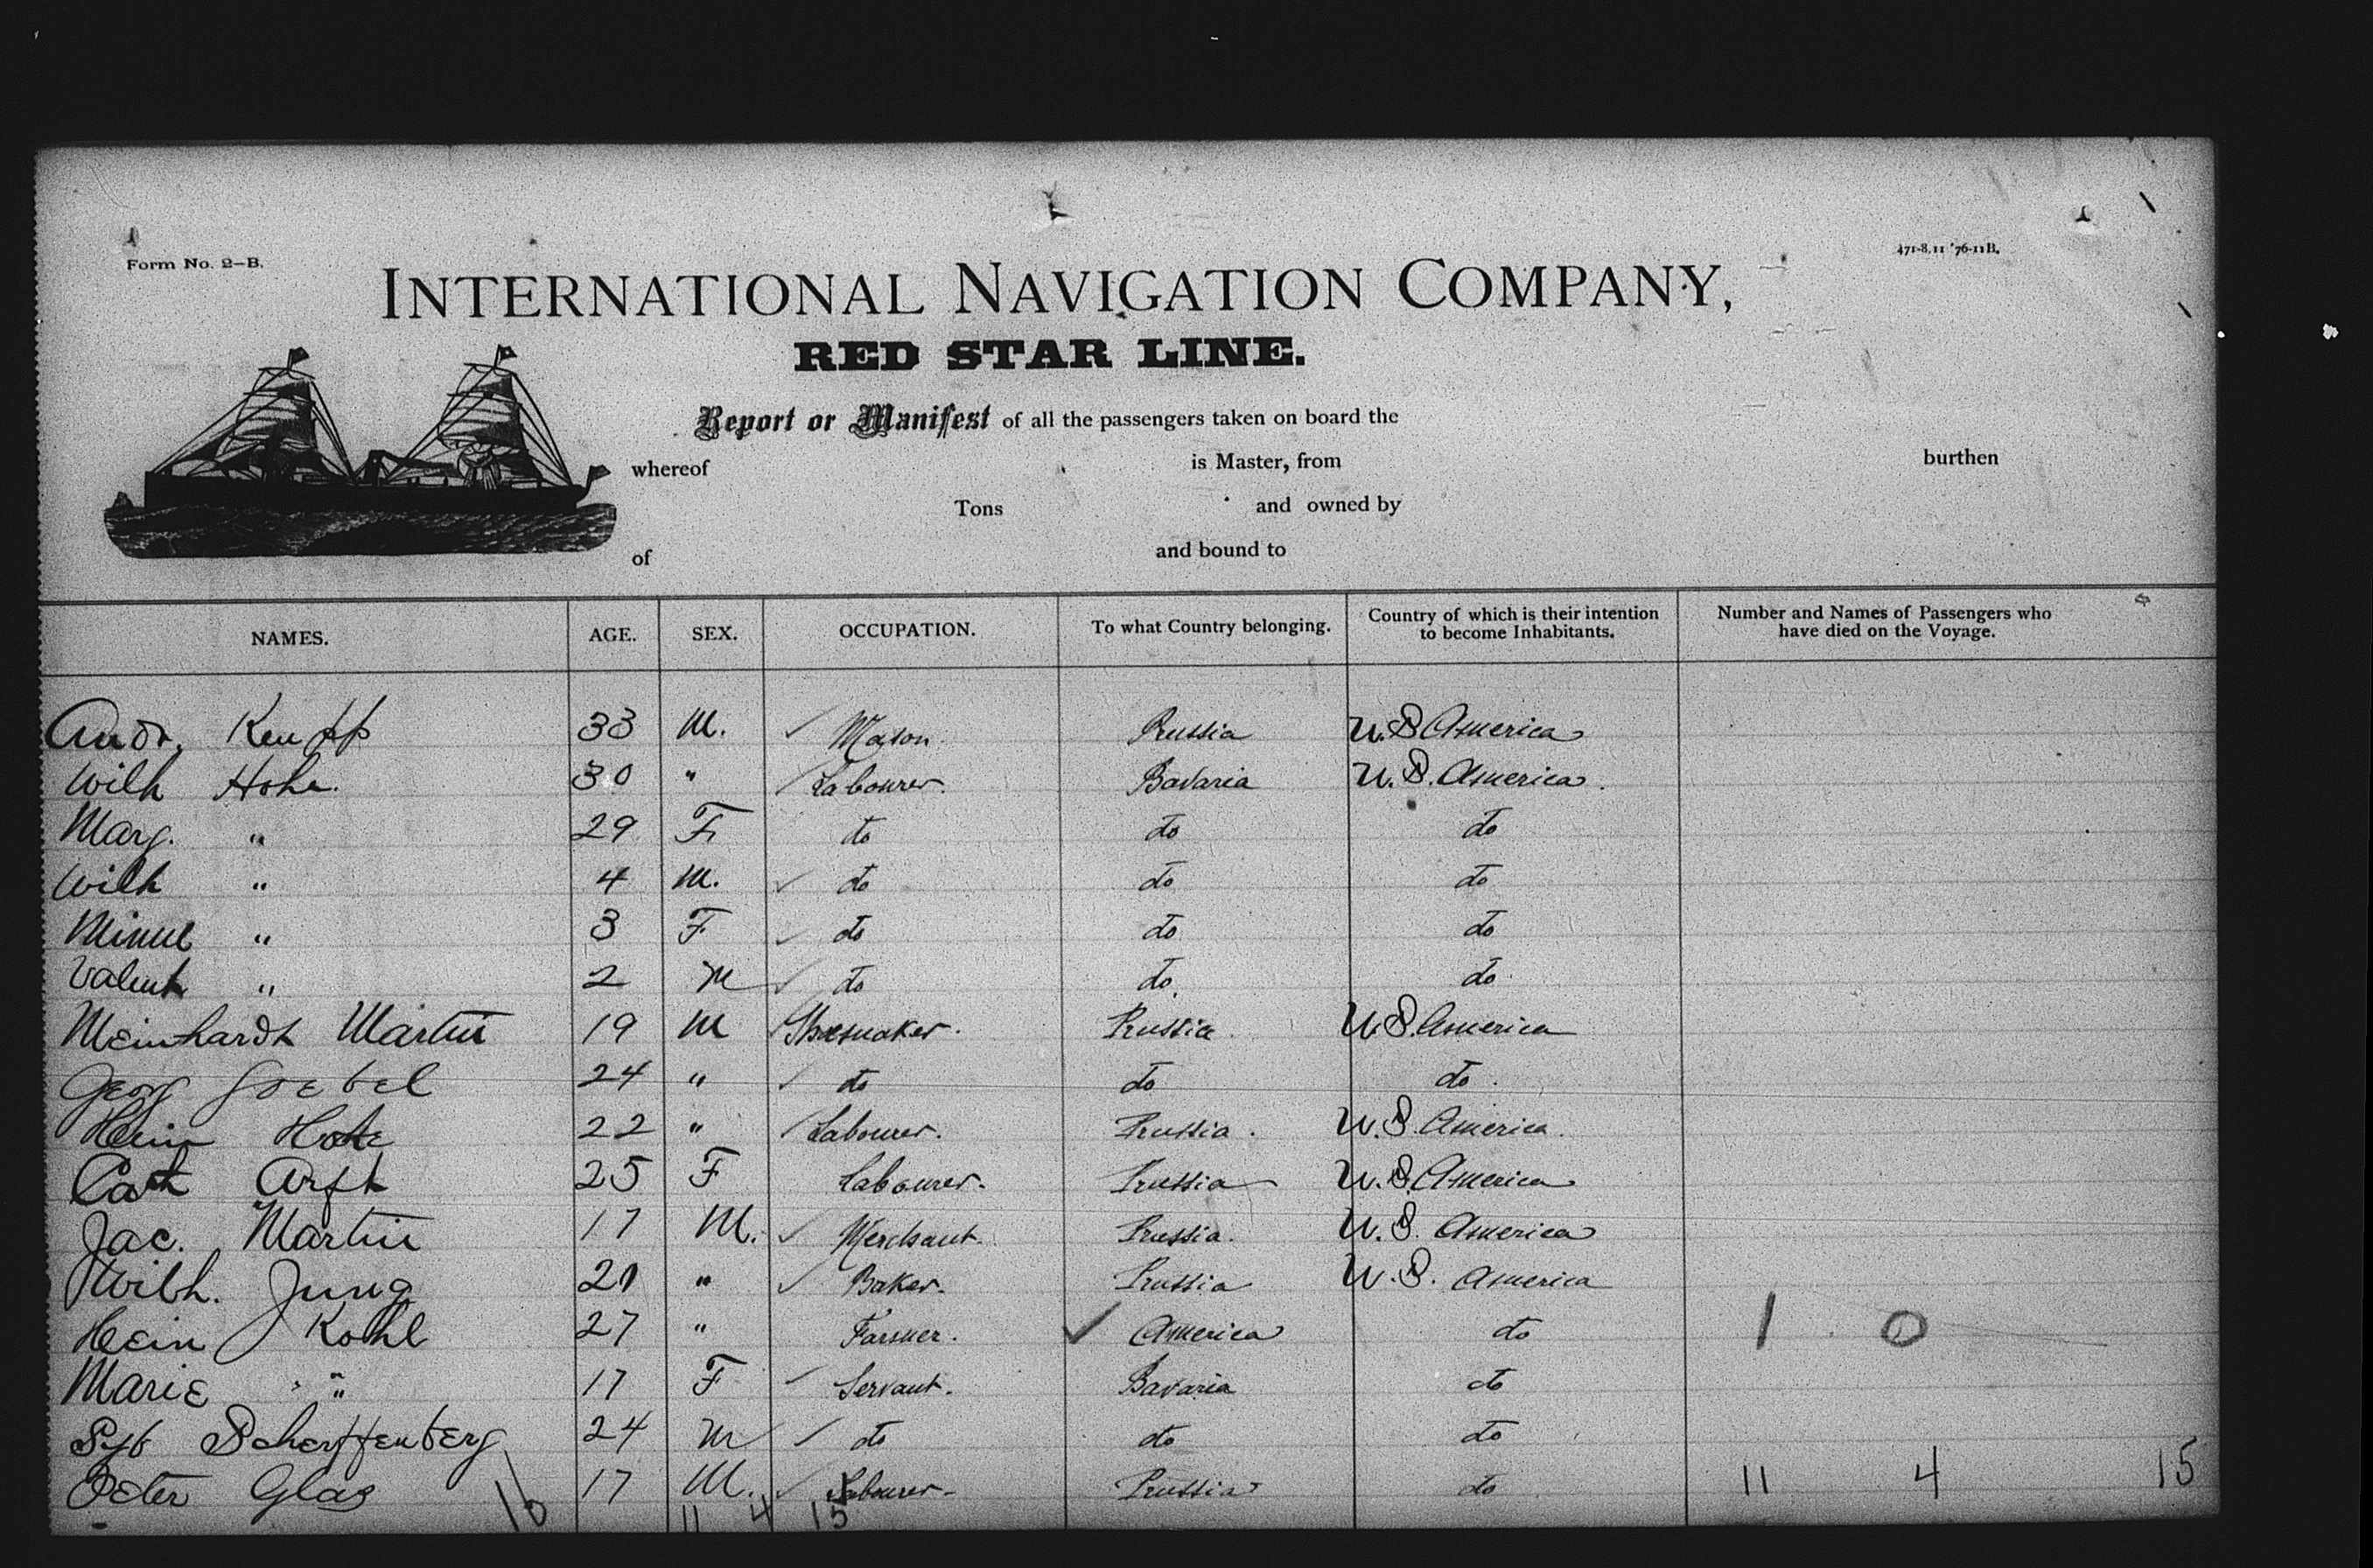 Form No. 2-B.
471-8.11 '76-11B.
INTERNATIONAL NAVIGATION COMPANY,
RED STAR LINE.
Report or Manifest of all the passengers taken on board the
whereof is Master, from burthen
Tons and owned by
of and bound to
NAMES. AGE. SEX. OCCUPATION. To what Country belonging. Country of which is their intention to become Inhabitants. Number and Names of Passengers who have died on the Voyage.
Andr. 33 M. Mason Prussia U.S America
Wilh Hohe. 30 " Labourer. Bavaria U.S. America.
Marg. " 29 F. do do do
Wilh " 4 M. do do do
Minne " 3 F do do do
Valent " 2 M do do. do.
Meinhardt Martin 19 M Shoemaker. Prussia. U.S. America
Georg Goebel 24 " do do do.
Hein 22 " Labourer. Prussia. U.S. America.
Cath Arft 25 F Labourer. Prussia U.S. America
Jac. Martin 17 M. Merchant. Prussia. U.S. America
Wilh. Jung 21 " Baker. Prussia U.S. America
Hein Kohl 27 " Farmer. America do 1 0
Marie " 17 F Servant. Bavaria do
Scherffenberg 24 M do do do
Peter Glas 17 M. Labourer. Prussia do 11 4 15
16 11 4 15